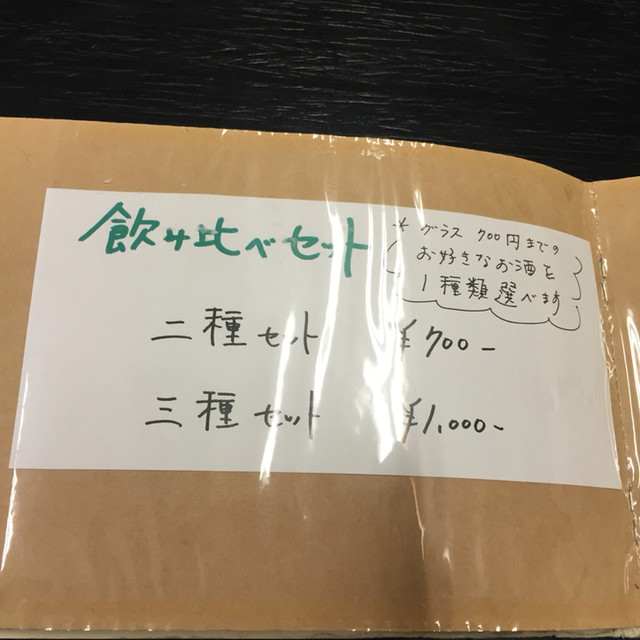 飲み比べセット
* グラス 700円までの
お好きなお酒を
1種類選べます
二種セット ¥700-
三種セット ¥1,000-